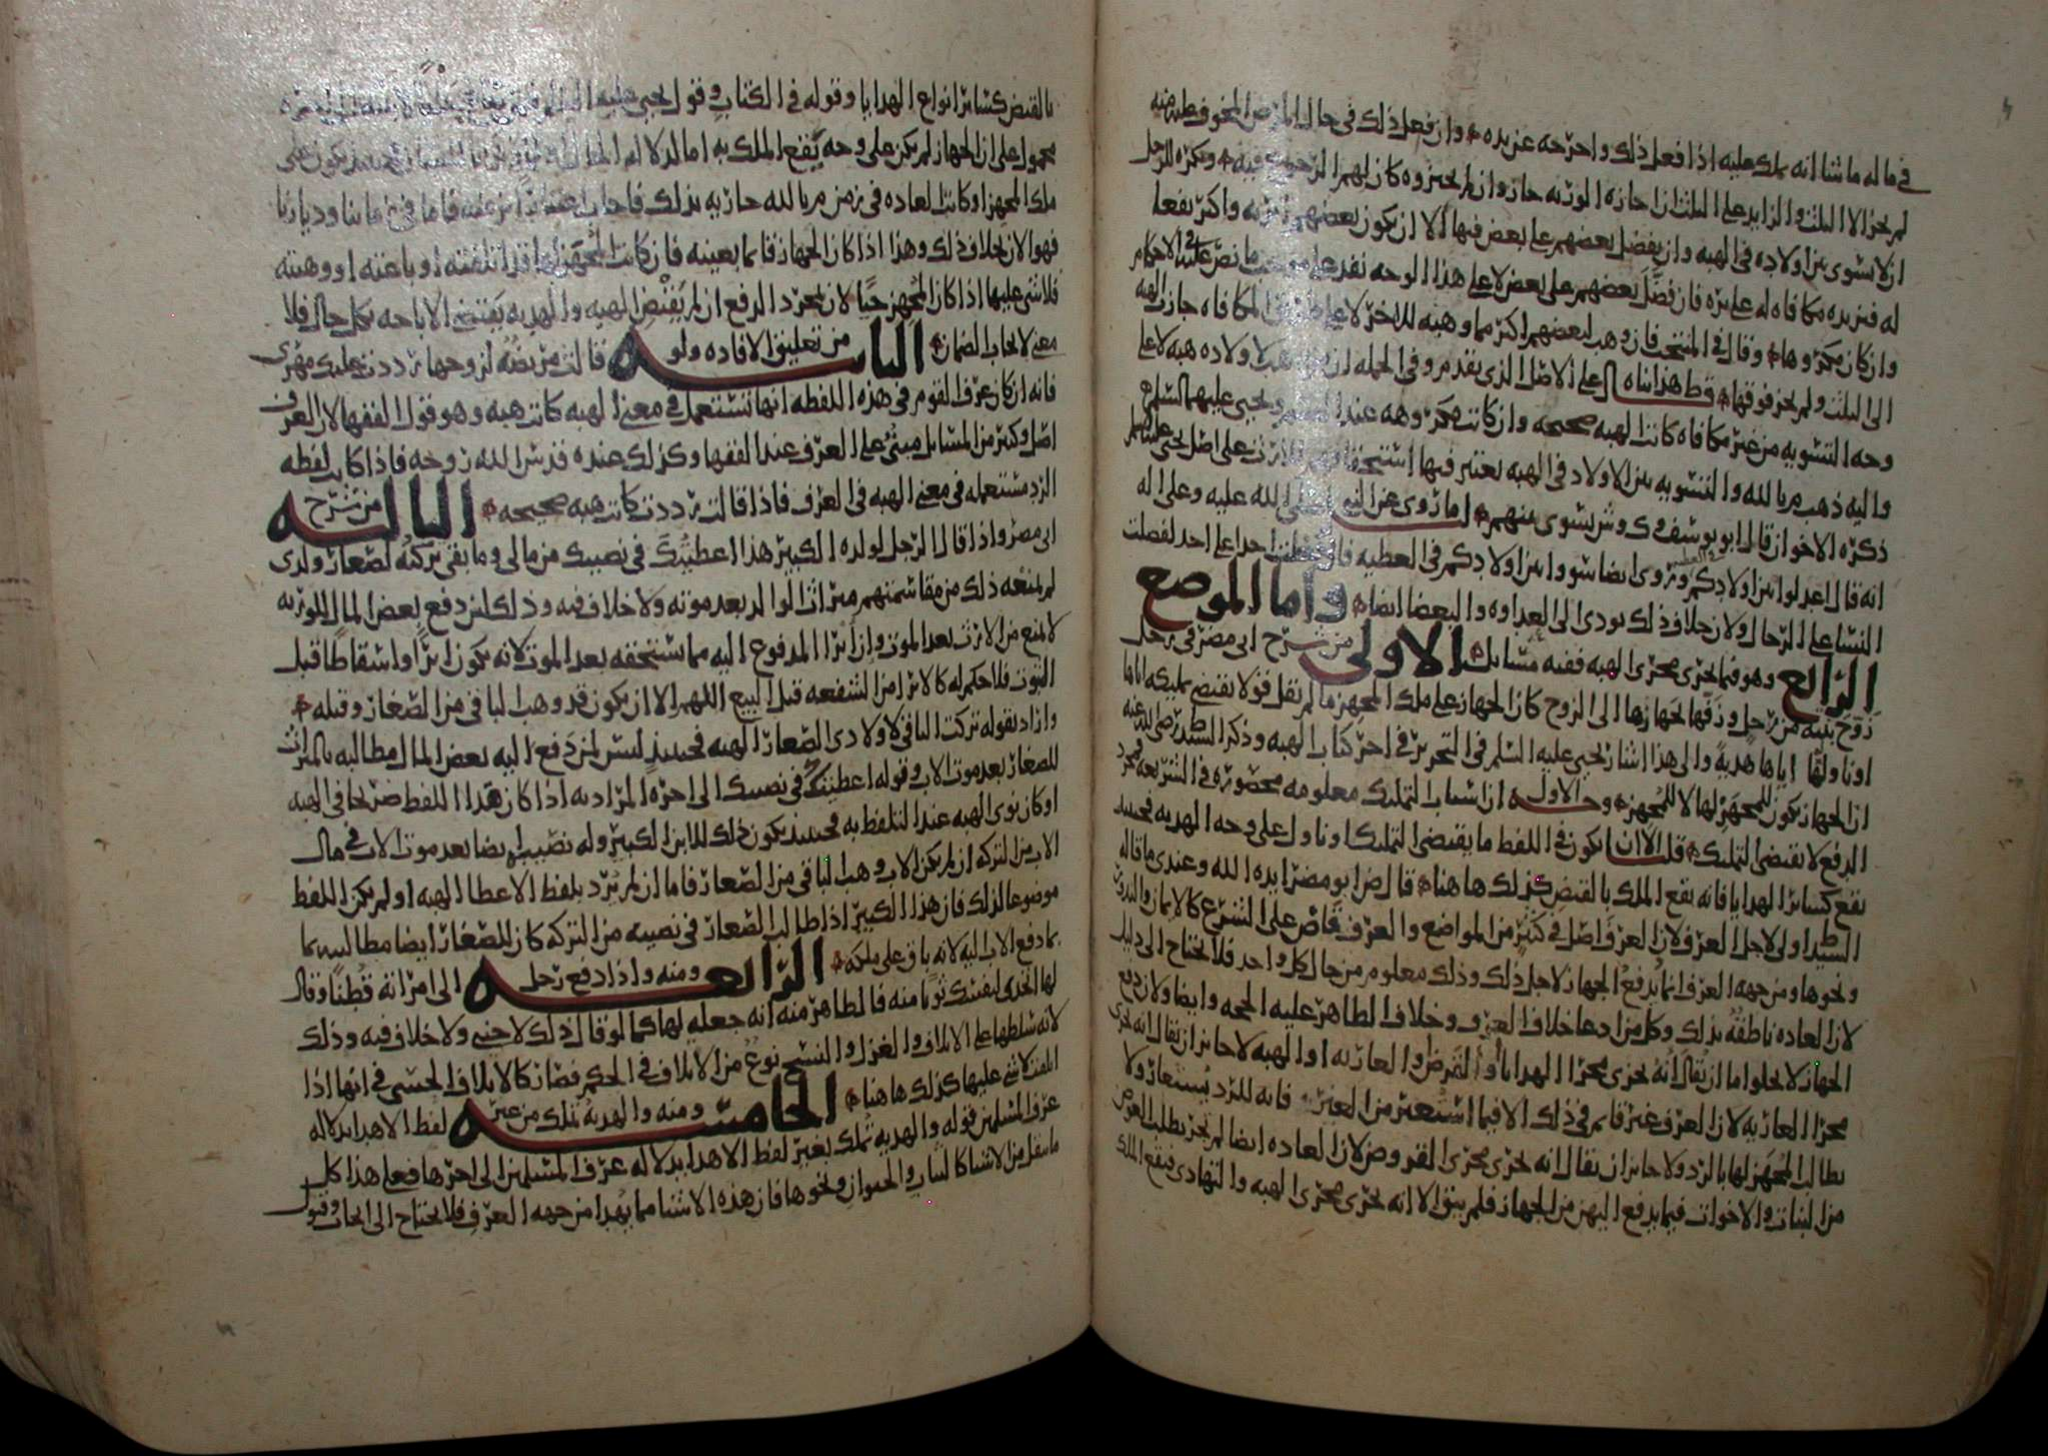 في ماله ما شا انه يملك عليه اذا فعل ذلك واخرجه عن يده وان فعل ذلك في حال المرض المخوف
لم يجز الا الثلث والزايد على الثلث ان اجازه الورثه جاز وان لم يجيزوه كان لهم الرجوع فيه ويكره للرجل
ان لا يسوي بين اولاده في الهبه وان يفضل بعضهم على بعض فيها الا ان يكون بعضهم ابر به واكثر نفعا
له فيزيده مكافاه له على بره فان فضل بعضهم على بعض لا على هذا الوجه نفذ على
وان كان مكروها وقال في المنتخب فان وهب لبعضهم اكثر مما وهبه للاخر لا على طريق المكافاه جاز الهبه
الى الثلث ولم يجز فوقها قط هذا بناه على الاصل الذي تقدم وفي الجمله ان هبه الاولاده هبه لا على
وجه التسويه من غير مكافاه كانت الهبه صحيحه وان كانت مكروهه عند القسم ويحيى عليهما السلم
واليه ذهب م بالله والتسويه بين الاولاد في الهبه يعتبر فيها استحقاقهم للارث على اصل يحيى
ذكره الاخوان قال ابو يوسف وك وش يسوى بينهم لما روي عن النبي صلى الله عليه وعلى اله
انه قال اعدلوا بين اولادكم وروي ايضا سووا بين اولادكم في العطيه فلو فضلت احدا على احد لفضلت
النسا على الرجال ولان خلاف ذلك يودي الى العداوه والبغضا ايضا واما الموضع
الرابع وهو فيما يجري مجرى الهبه ففيه مسايل الاولى من شرح ابي مضر في رجل
زوج بنته من رجل وزفها بجهازها الى الزوج كان الجهاز على ملك المجهز ما لم يقل قولا يقتضي تمليكه اياها
اوناولها اياها هديه والى هذا اشار يحيى عليه السلم في التحرير في اخر كتاب الهبه وذكر السيد ط رضي الله عنه
ان الجهاز يكون للمجهز لها لا للمجهز وجه الاول ان اسباب التمليك معلومه محصوره في الشريعه فمجرد
الدفع لا يقتضي التمليك قلت الا ان يكون في اللفظ ما يقتضي التمليك اوناول على وجه الهديه فحينيذ
يقع كساير الهدايا فانه يقع الملك بالقبض كذلك هاهنا قال ض ابو مضر ايده الله وعندي ما قاله
السيد ط اولى لاجل العرف لان العرف اصل في كثير من المواضع والعرف قاض على الشرع كالايمان والنذور
ونحوها ومن جهه العرف انما يدفع الجهاز لاجل ذلك وذلك معلوم من حال كل واحد فلا يحتاج الى دليل
لان العاده ناطقه بذلك وكل من ادعا خلاف العرف وخلاف الظاهر عليه الحجه وايضا ولان دفع
الجهاز لا يخلو اما ان يقال انه يجري مجرا الهدايا او القرض او العاريه او الهبه لا جايز ان يقال انه يجري
مجرا العاريه لان العرف غير قايم في ذلك الا فيما استعير من الغير فانه للرد يستعار ولا
يطالب المجهز لها بالرد ولا جايز ان يقال انه يجري مجرى القروض لان العاده ايضا لم تجر بطلب العوض
من البنات والاخوات فيما يدفع اليهن من الجهاز فلم يبق الا انه يجري مجرى الهبه والتهادي فيقع الملك
بالقبض كساير انواع الهدايا وقوله في الكتاب وقول يحيى عليه السلم
محمول على ان الجهاز لم يكن على وجه يقع الملك به اما لدلاله
ملك المجهز او كانت العاده في زمن م بالله جاريه بذلك فاجاب فاما في زماننا وديارنا
فهو الان بخلاف ذلك وهذا اذا كان الجهاز قايما بعينه فان كانت المجهز لها قد اتلفته او باعته او وهبته
فلا شي عليها اذا كان المجهز حيا لان مجرد الدفع ان لم يقتض الهبه والهديه يقتضي الاباحه بكل حال فلا
معنى لايجاب الضمان الثانيه من تعليق الافاده ولو قالت مريضه لزوجها رددت عليك مهري
فانه ان كان عرف القوم في هذه اللفظه انها تستعمل في معنى الهبه كانت هبه وهو قول الفقها لان العرف
اصل وكثير من المسايل مبني على العرف عند الفقها وكذلك عنده قدس الله روحه فاذا كانت لفظه
الرد مستعمله في معنى الهبه في العرف فاذا قالت رددت كانت هبه صحيحه الثالثه من شرح
ابي مضر واذا قال الرجل لولده الكبير هذا اعطيتك في نصيبك من مالي وما بقي تركته لصغار ولدي
لم يمنعه ذلك من مقاسمتهم ميراث الوالد بعد موته ولا خلاف فيه وذلك لان دفع بعض المال للورثه
لا يمنع من الارث بعد الموت وان ابرا المدفوع اليه مما يستحقه بعد الموت لانه يكون ابرا واسقاطا قبل
الثبوت فلا حكم له كالابرا من الشفعه قبل البيع اللهم الا ان يكون قد وهب الباقي من الصغار وقبله
واراد بقوله تركت الباقي لاولادي الصغار الهبه فحينيذ ليس لمن دفع اليه بعض المال مطالبه بالميراث
للصغار بعد موت الاب وقوله اعطيتك في نصيبك الى اخره المراد به اذا كان هذا اللفظ صريحا في الهبه
او كان نوى الهبه عند التلفظ به فحينيذ يكون ذلك للابن الكبير وله نصيب ايضا بعد موت الاب في مال
الاب من التركه ان لم يكن الاب وهب الباقي من الصغار فاما ان لم يرد بلفظ الاعطا الهبه او لم يكن اللفظ
موضوعا لذلك فان هذا الكبير اذا طالب الصغار في نصيبه من التركه كان للصغار ايضا مطالبته بما
بما دفع الاب اليه لانه باق على ملكه الرابعه ومنه واذا دفع رجل الى امراته قطنا وقال
لها اتخذي لنفسك ثوبا منه فالظاهر منه انه جعله لها كما لو قال ذلك لاجنبي ولا خلاف فيه وذلك
لانه سلطها على الاتلاف والغزل والنسج نوع من الاتلاف في الحكم فصار كالاتلاف الحسي في انها اذا
اتلفت لا شي عليها كذلك هاهنا الخامسه ومنه والهديه تملك من غير لفظ الاهدا بدلاله
عرف المسلمين قوله والهديه تملك بغير لفظ الاهدا بدلاله عرف المسلمين الى اخرها فعلى هذا كل
ما ينقل من الاشيا كالثياب والحيوان ونحوها فان هذه الاشيا مما يهدا من جهه العرف فلا يحتاج الى ايجاب وقبول